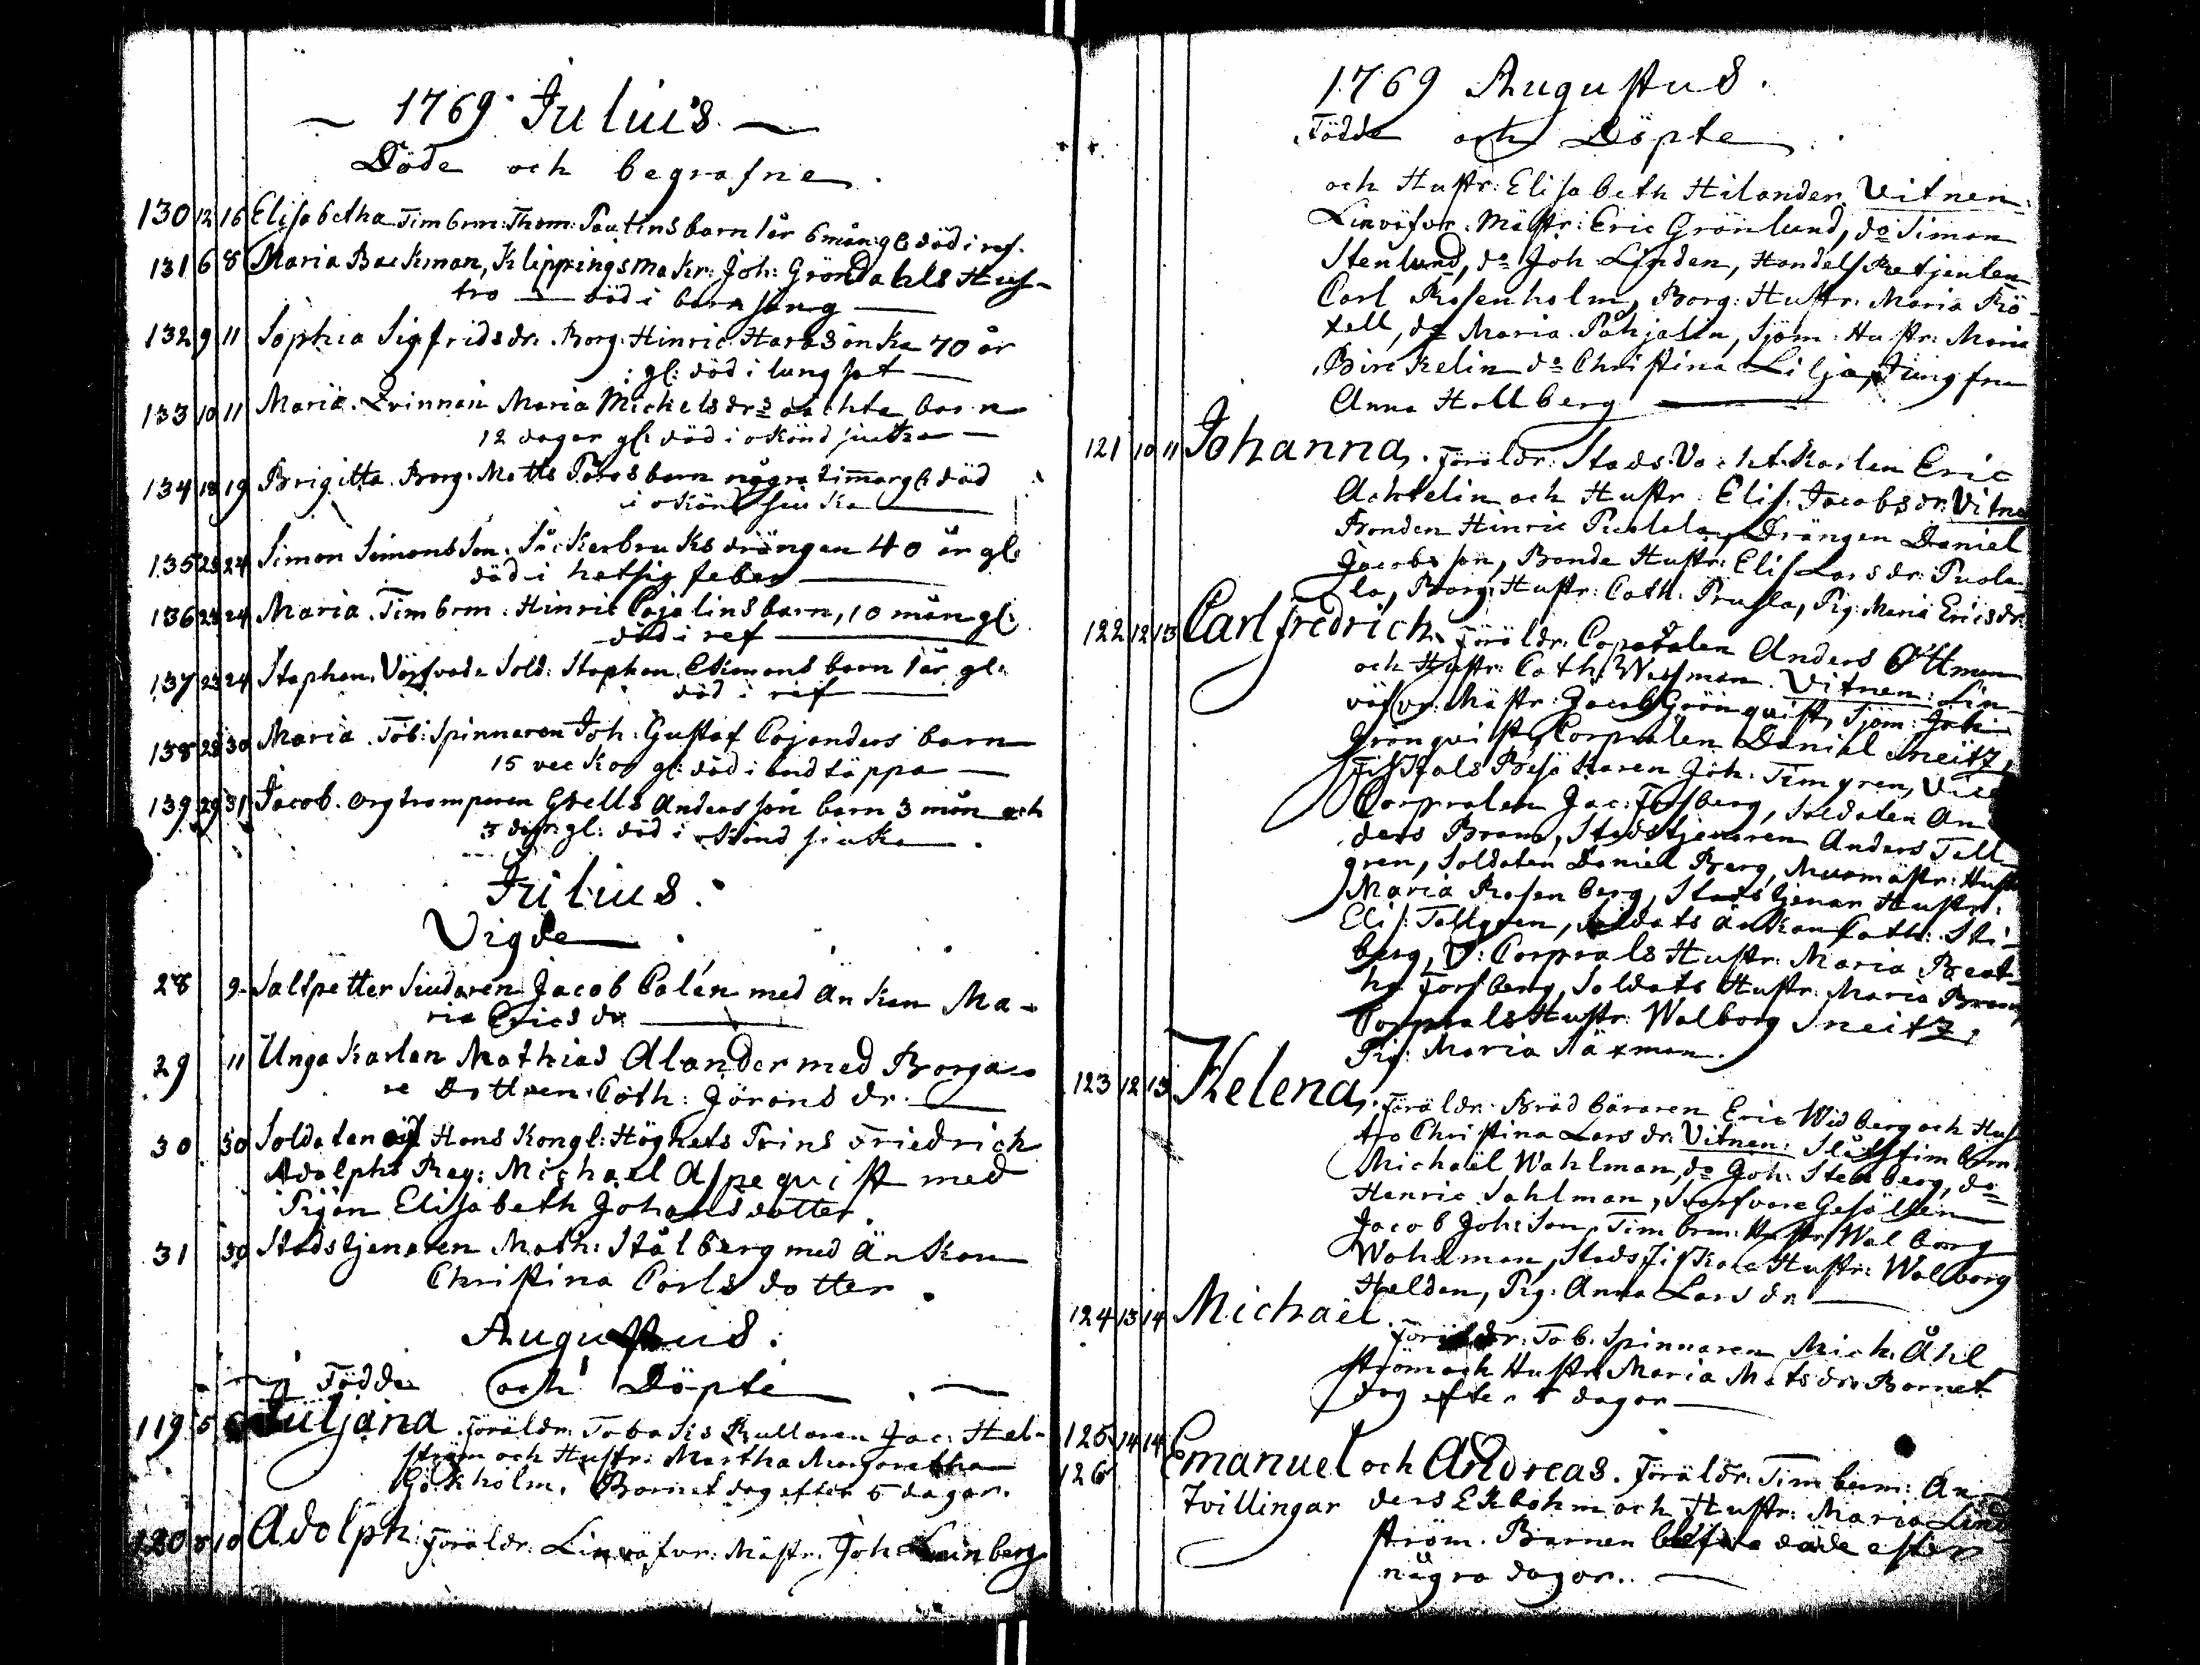 1769 Julius
Döde och begrafne.
130 12 16 Elisabetha Timbrm: Thom: Pautins barn 1 år 6 mån: gl: död i ref.
131 6 8 Maria Backman, Klippingsmakr: Joh: Gröndahls Hus-
tro död i barnsäng
132 9 11 Sophia Sigfridsdr. Borg: Hinric enka 70 år
gl: död i lungsot
133 10 11 Maria. Qvinnan Maria Michelsdrs oächta barn
12 dagar gl: död i okänd siuka
134 18 19 Brigitta. Borg: Matts barn några timmar gl: död
i okänd siuka
135 23 24 Simon Simonsson. Såckerbruksdrängen 40 år gl:
död i hetsig feber
136 23 24 Maria. Timbrm: Hinric Cajalins barn, 10 mån gl:
död i ref
137 23 24 Stephan. Sold: Stephan Ekmans barn 1 år gl:
död i ref
138 28 30 Maria. Tob: Spinnaren Joh: Gustaf Cajanders barn
15 veckor gl: död i andtäppa
139 29 31 Jacob. orgtramparen Andersson barn 3 mån och
3 dagr gl: död i okänd siuka.
Julius.
Vigde
28 9 Saltpetter Siudaren Jacob Palén med änkan Ma-
ria Ericsdr
29 11 Unga Karlen Mathias Alander med Borga-
re Dottren Cath: Jöransdr.
30 30 Soldaten af Hans Kongl: Höghets Prins Friedrich
Adolphs Reg: Michael Aspequist med
Pigan Elisabeth Johansdotter
31 30 Stadstjenaren Math: Stålberg med Änkan
Christina Carlsdotter.
Augustus.
Födde och Döpte
119 5 6 Juljana. Föräldr: Tobaks Rullaren Jac: Hel-
ström och Hustr: Martha Margaretha
Gökholm. Barnet dog efter 5 dagar.
120 8 10 Adolph. Föräldr: Linväfvr: Mästr: Joh:
1769 Augustus.
Födde och Döpte
och Hustr: Elisabeth Hilander Vitnen:
Linväfvr: Mästr: Eric Grönlund, do Simon
Stenlund, do Joh: Linden, Handels Betjenten
Carl Rosenholm, Borg: Hustr: Maria Kö-
tell, do Maria Påhjalin, Sjöm: Hustr: Maria
Birckelin do Christina Lilja, Jungfru
Anna Hallberg
121 10 11 Johanna. Föräldr: Stads Vachtkarlen Eric
Achtelin och Hustr: Elis: Jacobsdr: Vitne
Bonden Hinric Puolala, Drängen Daniel
Jacobsson, Bonde Hustr: Elis Larsdr: Puola-
la, Borg: Hustr: Cath: Prusla, Pig: Maria Ericsdr:
122 12 13 Carl fredrich. Föräldr: Coporalen Anders Öttman
och Hustr: Cath: Wessman. Vitnen: Lin-
väfvr: Mästr: Jacob Grönqvist, Sjöm: Joh:
Grönqvist, Corpralen Daniel Sneitz,
Fiskals Besökaren Joh: Timgren, Vice
Corpralen Jac: Forsberg, Soldaten An-
ders Bram, Stadstjenaren Anders Tall-
gren, Soldaten Daniel Berg, Murmästr: Hustr
Maria Rosenberg, Stadstjenar Hustr:
Elis: Tallgren, Soldats änkan Cath: Sti-
berg, V: Corprals Hustr: Maria Beat-
ha Forsberg, Soldats Hustr: Maria Bram
Corprals Hustr: Walborg Sneitz,
Pig: Maria Säxman.
123 12 13 Helena. Föräldr: Brädbäraren Eric Widberg och Hus-
tro Christina Larsdr: Vitnen: Slåtstimbrm:
Michaël Wahlman, do Joh: Stenberg, do
Henric Sahlman, Svarfvare Gesällen
Jacob Joh:Son, Timbrm: Hustr: Walborg
Wahlman, Stads Fiskals Hustr: Walborg
Helden, Pig: Anna Larsdr
124 13 14 Michaël.
Föräldr: Tob: Spinnaren Mich: Åhl-
ström och Hustr: Maria Matsdr: Barnet
dog efter 5 dagar
125 14 14 Emanuel och Andreas. Föräldr: Timberm: An-
126 Tvillingar ders Ekbohm och Hustr: Maria Lind-
ström. Barnen döde efter
några dagar.